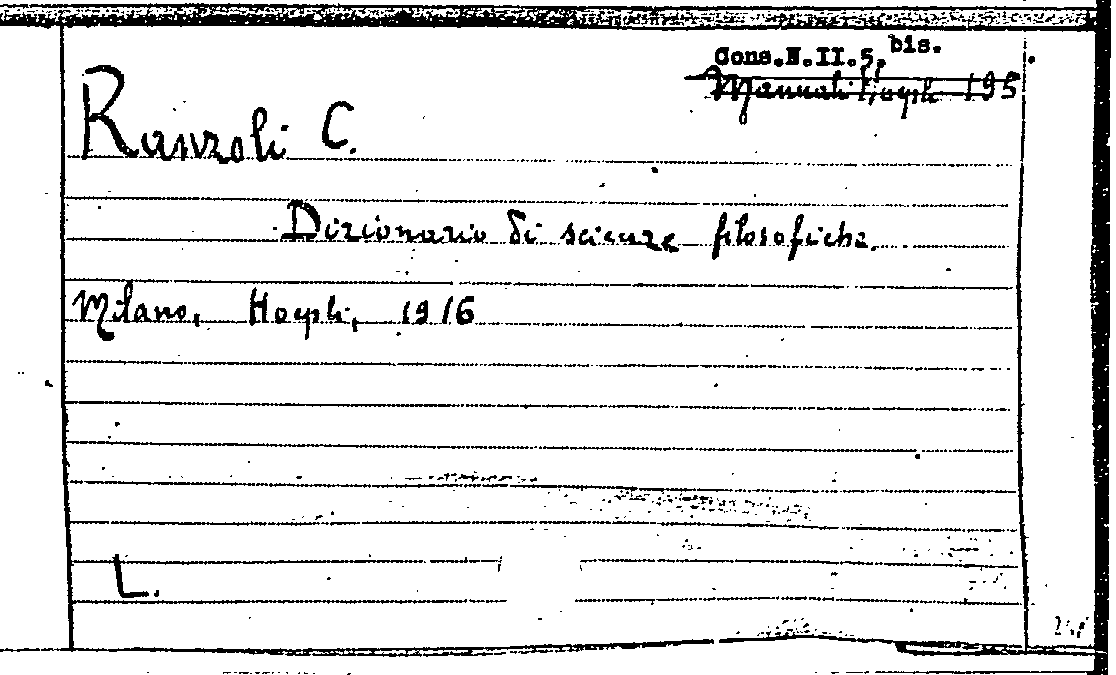 Cons.N.II.5.bis.
Manuali Hoepli 195
Ranzoli C.
Dizionario di scienze filosofiche.
Milano, Hoepli, 1916
L.